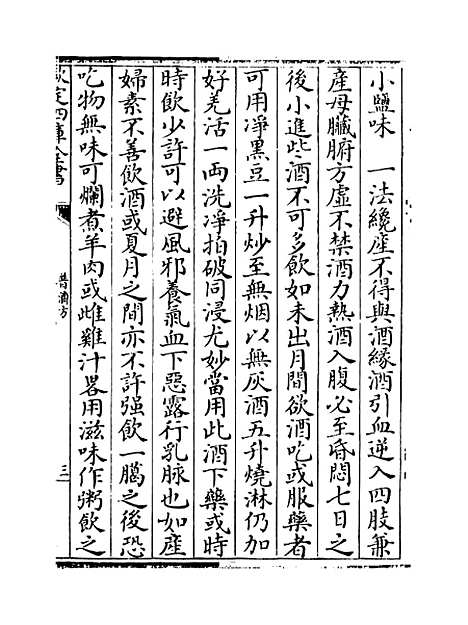 小鹽味　一法纔産不得與酒緣酒引血逆入四肢兼
産母臟腑方虛不禁酒力熱酒入腹必至昏悶七日之
後小進些酒不可多飲如未出月間欲酒吃或服藥者
可用凈黑豆一升炒至無烟以無灰酒五升燒淋仍加
好羌活一兩洗凈拍破同浸尤妙當用此酒下藥或時
時飲少許可以避風邪養氣血下惡露行乳脉也如産
婦素不善飲酒或夏月之間亦不許强飲一臈之後恐
吃物無味可爛煮羊肉或雌雞汁畧用滋味作粥飲之
欽定四庫全書
普濟方
三